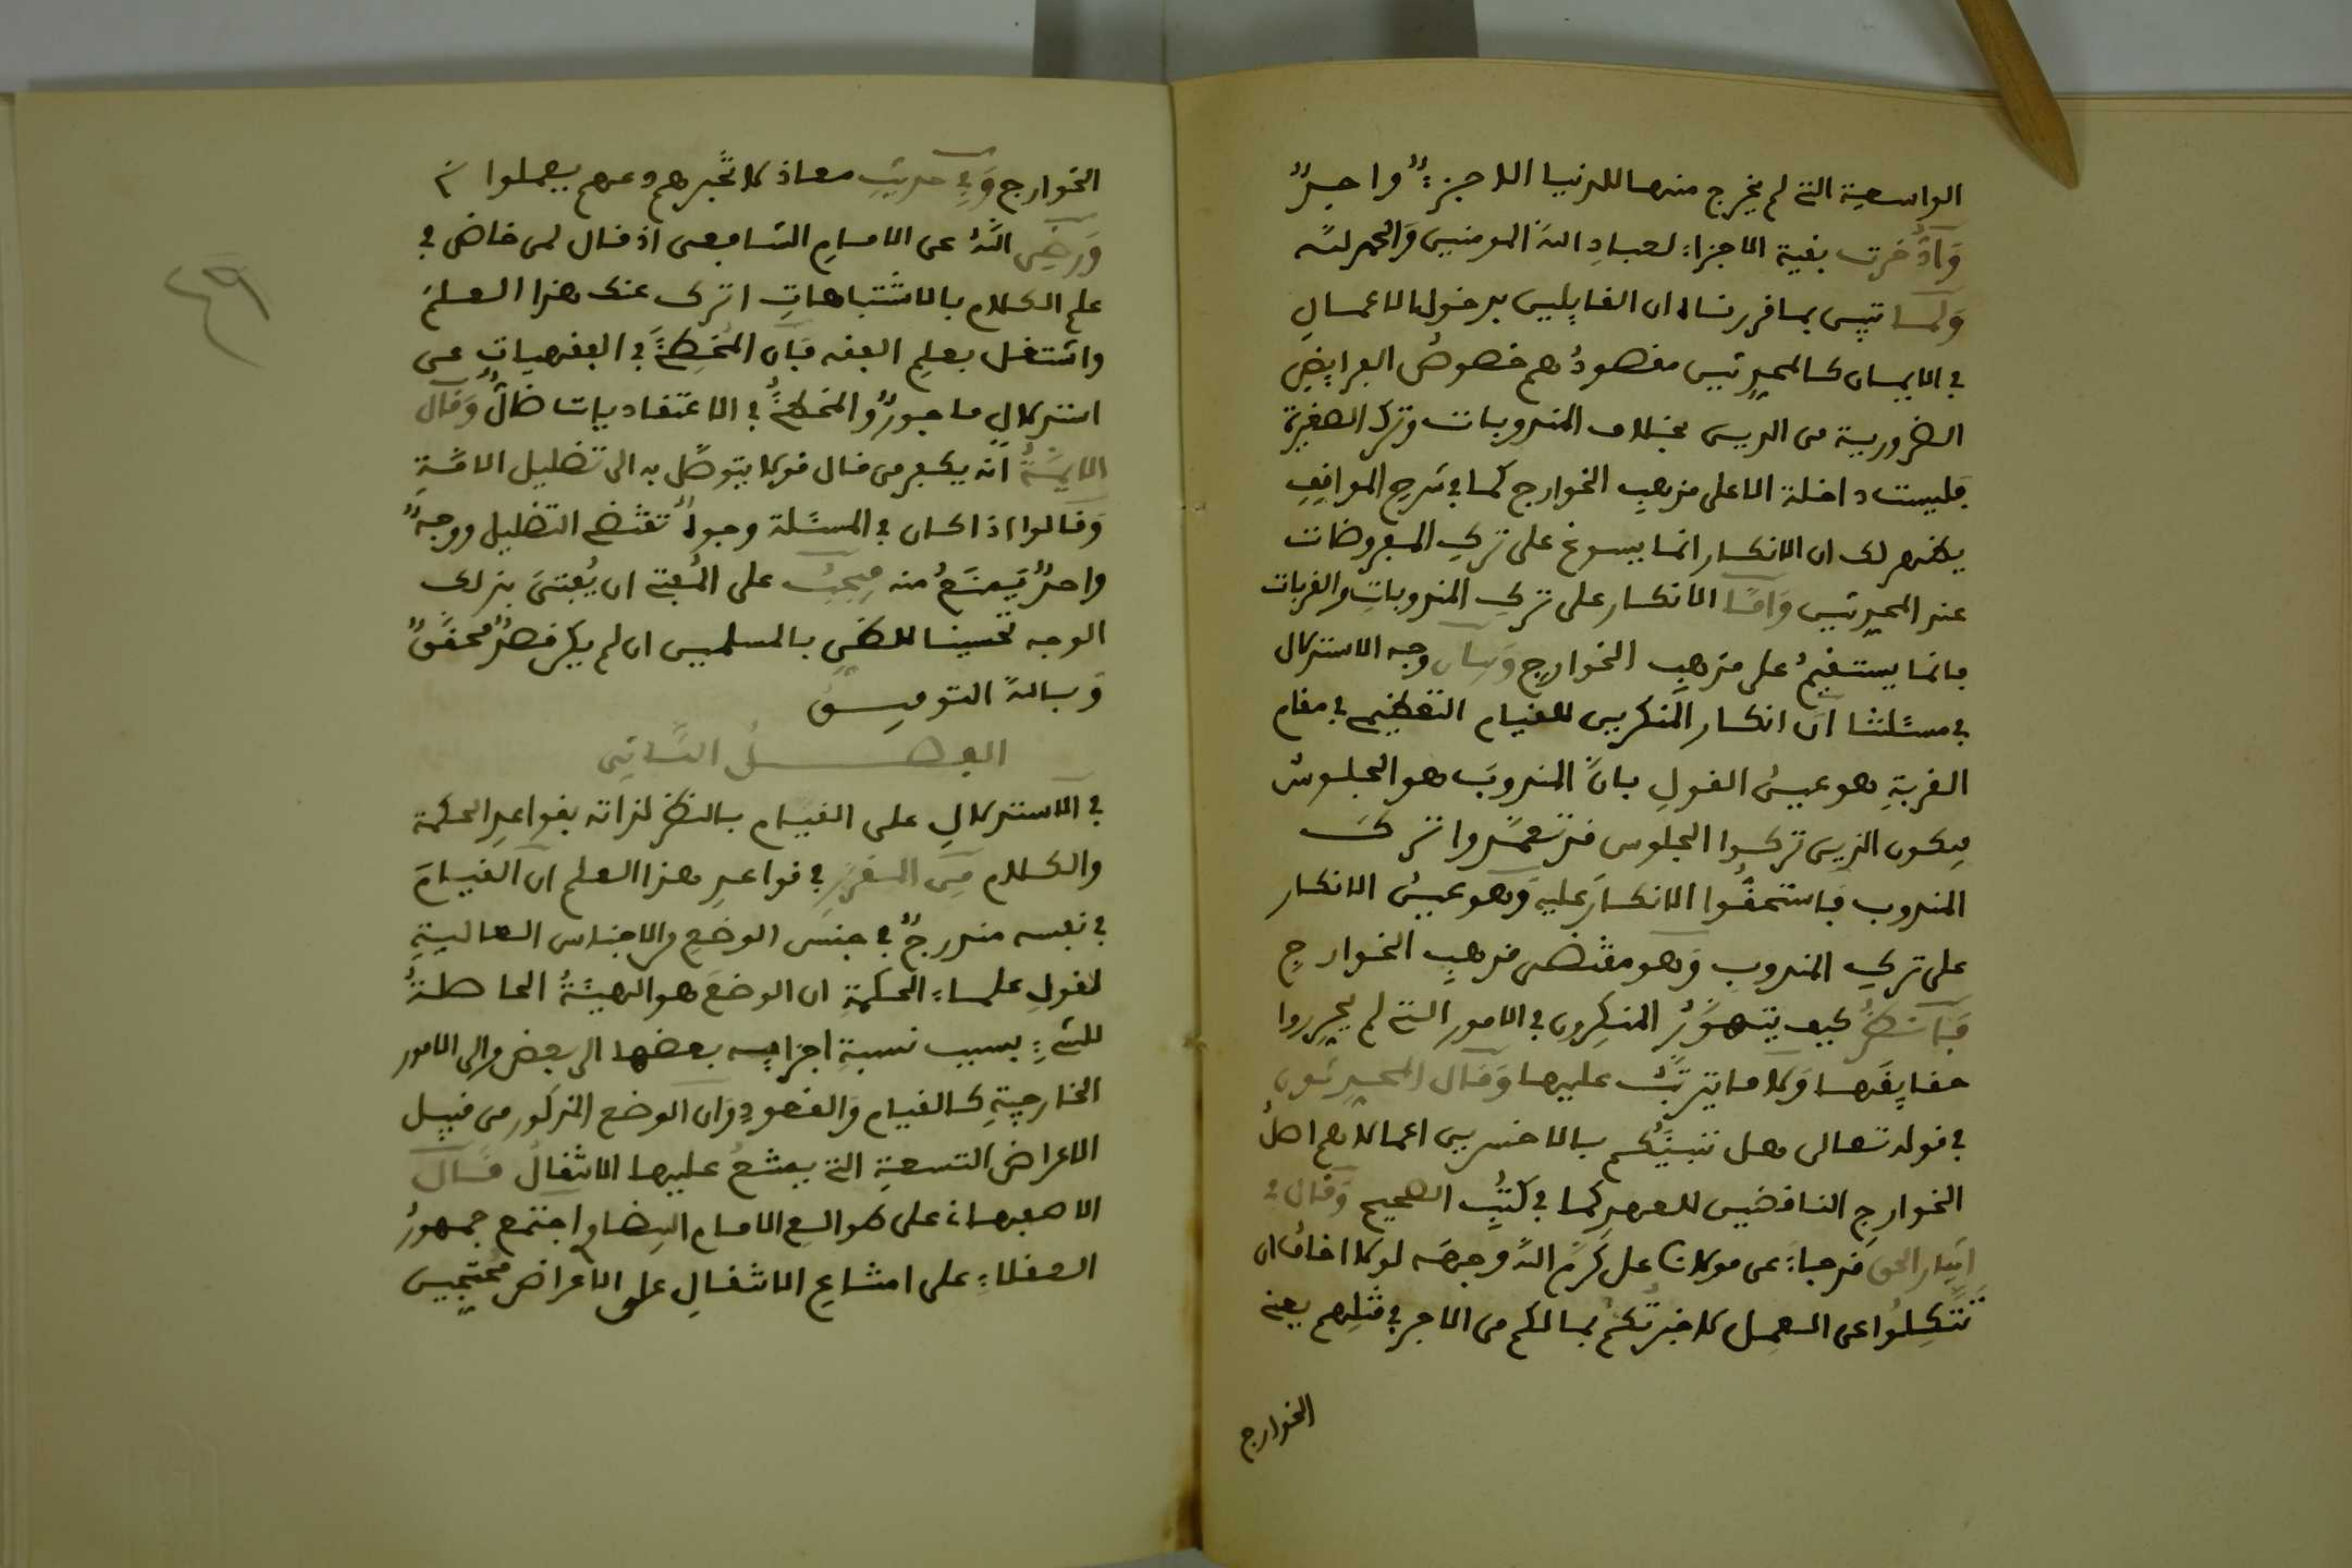 الواسعة التي لم يخرج منها للدنيا الا جزءٌ واحدٌ
وَادُّخرت بقية الاجزاء لعبادِ اللهِ المومنين وَالحمد لله
وَلما تبين بما قررناه ان القايلين بدخول الاعمالِ
في الايمان كالمحدثين مقصودُهم خصوصُ الفرايضِ
الضرورية من الدين بخلاف المندوبات وترك الصغيرة
فليست داخلة الا على مذهبِ الخوارج كما في شرح المواقفِ
يظهر لك ان الانكار انما يسوغ على تركِ المفروضات
عند المحدثين وَامّا الانكار على تركِ المندوباتِ والقربات
فانما يستقيمُ على مذهبِ الخوارجِ وَبيان وجه الاستدلال
في مسئلتنا ان انكار المنكرين للقيام التعظيمي في مقام
القربةِ هو عينُ القولِ بانّ المندوبَ هو الجلوسُ
فيكون الذين تركوا الجلوس قد تعمّدوا تركَ
المندوب فاستحقُّوا الانكارَ عليه وَهو عينُ الانكار
على تركِ المندوب وَهو مقتضى مذهبِ الخوارجِ
فانظرْ كيف يتهوّرُ المنكِرون في الامور التي لم يحرروا
حقايِقَها وَلا ما يترتّبُ عليها وَقال المحدثون
في قوله تعالى هل ننبّئكم بالاخسرين اعمالا هم اهلُ
الخوارجِ الناقضين للعهدِ كما في كتُبِ الصحيح وَقال في
ايثار الحق قد جاء عن مولانا علي كرّم اللهُ وجهه لولا اخافُ ان
تتّكِلوا عن العمِل لاخبرتُكم بما لكم من الاجر في قتلِهم يعني
الخوارج
الخوارج وَفي حديثِ معاذ لا تُخبرهم دعهم يعملوا
وَرضي اللهُ عن الامامِ الشافعي اذ قال لمن خاض في
علم الكلام بالاشتباهاتِ اترك عنك هذا العلمَ
واشتغل بعلمِ الفقه فان المُخطِئَ في الفقهياتِ عن
استدلالٍ ماجورٌ والمخطئُ في الاعتقاديات ضالٌّ وَقال
الايمّةُ انه يكفر من قال قولا يتوصّل به الى تضليل الامّةِ
وَقالوا اذا كان في المسئلة وجوهٌ تقتضي التضليل ووجهٌ
واحدٌ يَمنَعُ منه فيجبُ على المُفتي ان يُفتىَ بذلك
الوجه تحسينا للظنِّ بالمسلمين ان لم يكن قصدٌ محقّقٌ
وَبالله التوفيق
الفصلُ الثاني
في الاستدلالِ على القيام بالنظر لذاته بقواعدِ الحكمة
والكلام مِن المقررِ في قواعدِ هذا العلم ان القيامَ
في نفسه مندرجٌ في جنس الوضعِ من الاجناس العاليةِ
لقولِ علماءِ الحكمةِ ان الوضعَ هو الهيئةُ الحاصلةُ
للشيءِ بسبب نسبةِ اجزايه بعضها الى بعض والى الامور
الخارجيةِ كالقيام وَالقعودِ وَان الوضع المذكور من قبيل
الاعراض التسعةِ التي يمتنعُ عليها الانتقال قال
الاصفهاني على طوالع الامام البيضاوي اجتمع جمهورُ
العقلاءِ على امتناعِ الانتقالِ على الاعراض محتجين
٤٩